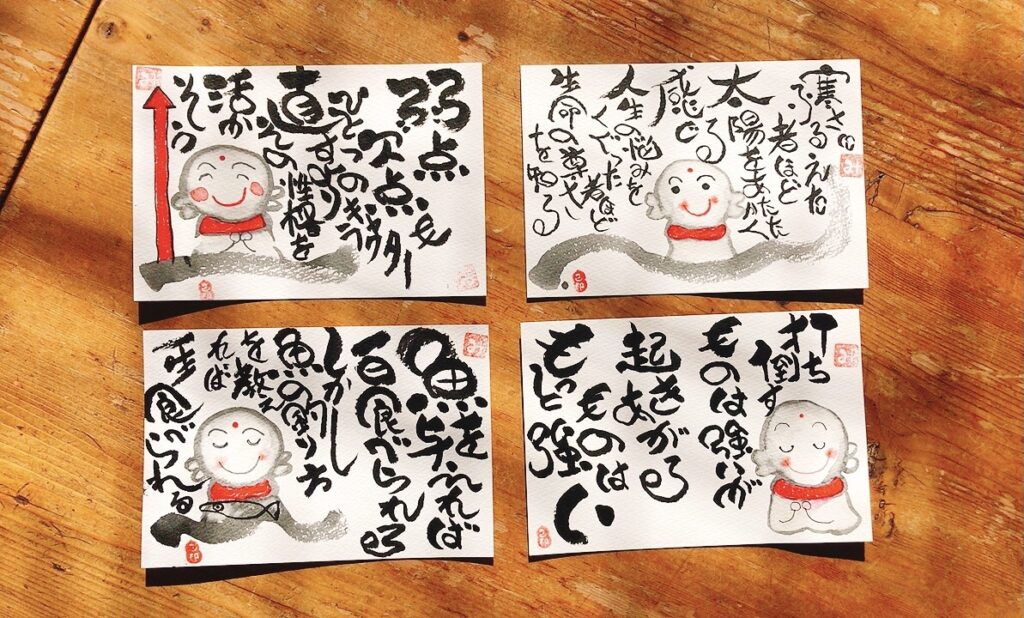 弱点
欠点も
ひとつのキャラクター
直すより
その性格を
活か
そう
寒さに
ふるえた
者ほど
太陽をあたたかく
感じる
人生の悩みを
くぐった者ほど
生命の尊さ
を知る
魚を与えれば
一日食べられる
しかし
魚の釣り方
を教え
れば
一生食べられる
打ち
倒す
ものは強いが
起きあがる
ものは
もっと強い